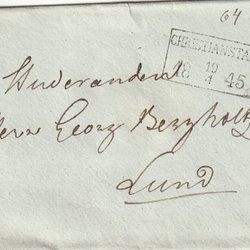 64
CHRISTIANSTA
18 19/4 45
Studeranden
Herr Georg Bergholtz
Lund